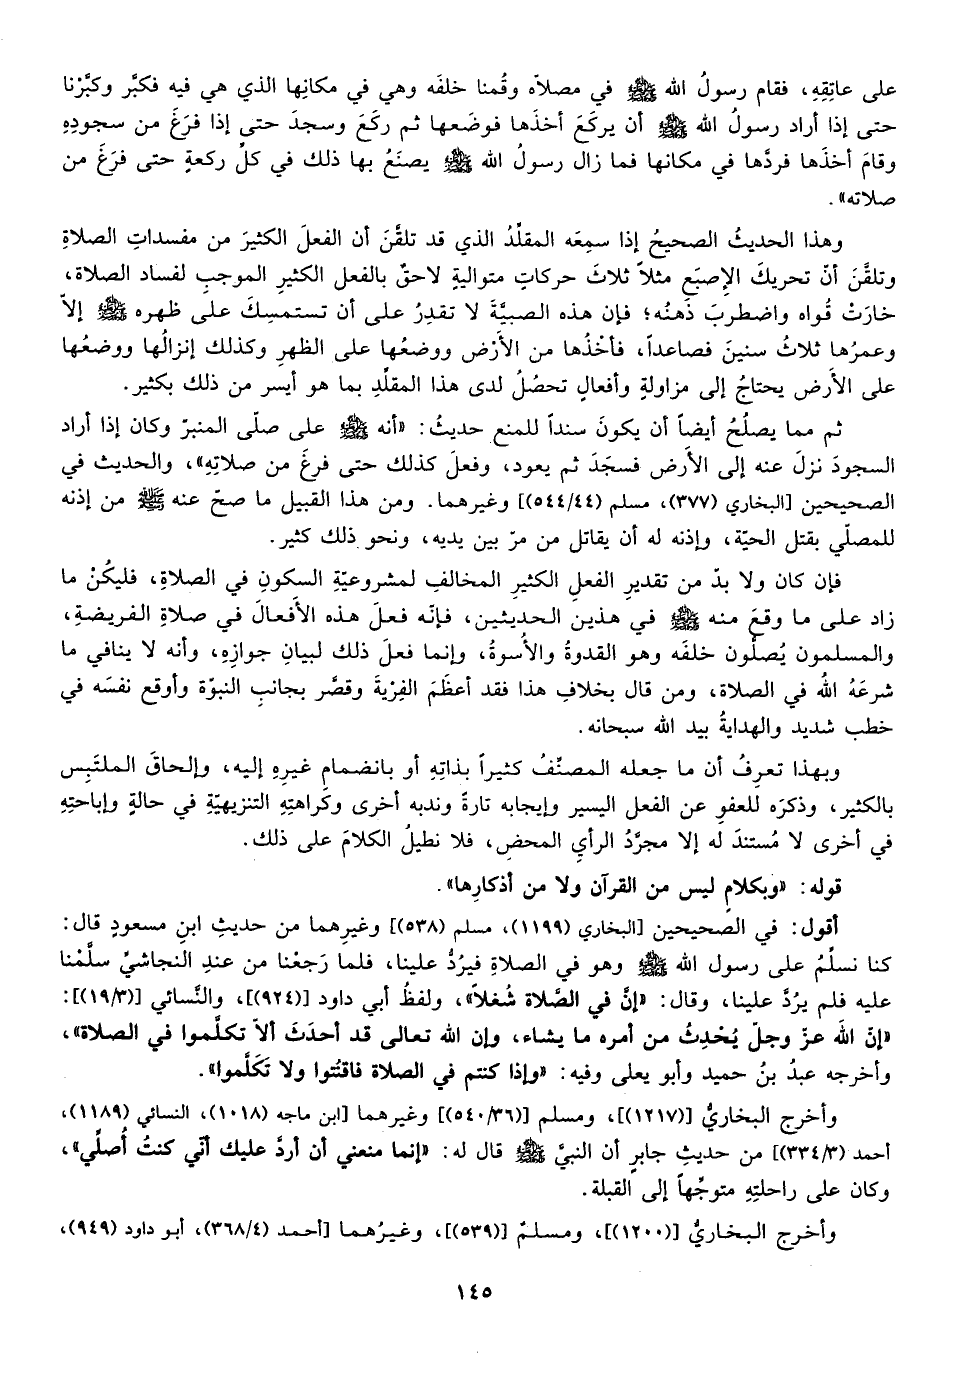 على عاتِقِهِ، فقام رسولُ الله ﷺ في مصلاّه وقُمنا خلفَه وهي في مكانِها الذي هي فيه فكبَّر وكبَّرْنا
حتى إذا أراد رسولُ الله ﷺ أن يركَعَ أخذَها فوضَعها ثم ركَعَ وسجدَ حتى إذا فرَغَ من سجودِهِ
وقامَ أخذَها فردَّها في مكانها فما زال رسولُ الله ﷺ يصنَعُ بها ذلك في كلِّ ركعةٍ حتى فرَغَ من
صلاته».
وهذا الحديثُ الصحيحُ إذا سمِعَه المقلِّدُ الذي قد تلقَّنَ أن الفعلَ الكثيرَ من مفسداتِ الصلاةِ
وتلقَّنَ أنّ تحريكَ الإصبَعِ مثلاً ثلاثَ حركاتٍ متواليةٍ لاحقٌ بالفعل الكثيرِ الموجبِ لفساد الصلاة،
خارَتْ قُواه واضطربَ ذهنُه؛ فإن هذه الصبيَّةَ لا تقدِرُ على أن تستمسِكَ على ظهره ﷺ إلاّ
وعمرُها ثلاثُ سنينَ فصاعداً، فأخْذُها من الأَرْض ووضعُها على الظهرِ وكذلك إنزالُها ووضعُها
على الأَرض يحتاجُ إلى مزاولةٍ وأفعالٍ تحصُلُ لدى هذا المقلِّدِ بما هو أيسر من ذلك بكثير.
ثم مما يصلُحُ أيضاً أن يكونَ سنداً للمنع حديثُ: «أنه ﷺ على صلّى المنبرّ وكان إذا أراد
السجودَ نزلَ عنه إلى الأَرض فسجَدَ ثم يعود، وفعلَ كذلك حتى فرغَ من صلاتِهِ»، والحديث في
الصحيحين [البخاري (٣٧٧)، مسلم (٥٤٤/٤٤)] وغيرهما. ومن هذا القبيل ما صحّ عنه ﷺ من إذنه
للمصلّي بقتل الحيّة، وإذنه له أن يقاتل من مرّ بين يديه، ونحو ذلك كثير.
فإن كان ولا بدّ من تقديرِ الفعلِ الكثيرِ المخالفِ لمشروعيّةِ السكونِ في الصلاةِ، فليكُنْ ما
زاد على ما وقعَ منه ﷺ في هذين الحديثين، فإنّه فعلَ هذه الأفعالَ في صلاةِ الفريضةِ،
والمسلمون يُصلُّون خلفَه وهو القدوةُ والأسوةُ، وإنما فعلَ ذلك لبيانِ جوازِهِ، وأنه لا ينافي ما
شرعَهُ اللهُ في الصلاة، ومن قال بخلافِ هذا فقد أعظَمَ الفِرْيةَ وقصَّر بجانبِ النبوّة وأوقع نفسَه في
خطب شديد والهدايةُ بيد الله سبحانه.
وبهذا تعرِفُ أن ما جعله المصنّفُ كثيراً بذاتِهِ أو بانضمامِ غيرِهِ إليه، وإلحاقَ الملتَبِس
بالكثير، وذكرَه للعفوِ عن الفعل اليسير وإيجابه تارةً وندبه أخرى وكَراهتِهِ التنزيهيّةِ في حالةٍ وإباحتِهِ
في أخرى لا مُستندَ له إلا مجرَّدُ الرأيِ المحضِ، فلا نطيلُ الكلامَ على ذلك.
قوله: «وبكلامٍ ليس من القرآن ولا من أذكارِها».
أقول: في الصحيحين [البخاري (١١٩٩)، مسلم (٥٣٨)] وغيرِهما من حديثِ ابنِ مسعودٍ قال:
كنا نسلِّمُ على رسول الله ﷺ وهو في الصلاةِ فيَردُّ علينا، فلما رَجعْنا من عندِ النجاشيِّ سلَّمْنا
عليه فلم يرُدَّ علينا، وقال: «إنَّ في الصَّلاة شُغلاً»، ولفظُ أبي داود [(٩٢٤)]، والنَّسائي [(١٩/٣)]:
«إنّ اللهَ عزّ وجلّ يُحْدِثُ من أمره ما يشاء، وإن الله تعالى قد أحدَثَ ألاّ تكلَّموا في الصلاة»،
وأخرجه عبدُ بنُ حميد وأبو يعلى وفيه: «وإذا كنتم في الصلاة فاقنُتُوا ولا تَكَلَّموا».
وأخرج البخاريُّ [(١٢١٧)]، ومسلم [(٥٤٠/٣٦)] وغيرهما [ابن ماجه (١٠١٨)، النسائي (١١٨٩)،
أحمد (٣٣٤/٣)] من حديثِ جابرٍ أن النبيَّ ﷺ قال له: «إنما منعني أن أردَّ عليك أنّي كنتُ أُصلِّي»،
وكان على راحلتِهِ متوجِّهاً إلى القبلة.
وأخرج البخاريُّ [(١٢٠٠)]، ومسلمٌ [(٥٣٩)]، وغيرُهما [أحمد (٣٦٨/٤)، أبو داود (٩٤٩)،
١٤٥